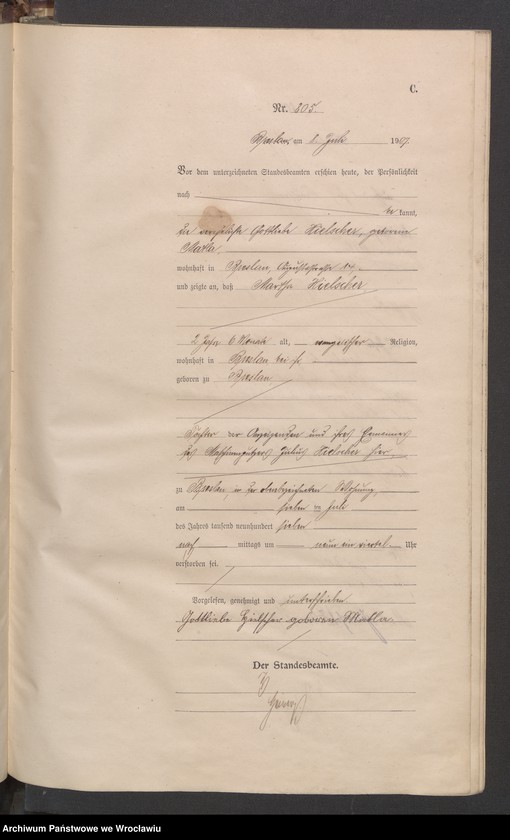 C.
Nr. 805.
Breslau, am 8. Juli 1907.
Vor dem unterzeichneten Standesbeamten erschien heute, der Persönlichkeit
nach
be kannt,
die verehelichte Gottliebe Hielscher, geborene
Matla,
wohnhaft in Breslau,
und zeigte an, daß Martha Hielscher
2 Jahre 6 Monate alt, evangelischer Religion,
wohnhaft in Breslau bei ihr
geboren zu Breslau
Tochter der Anzeigenden und ihres Ehemannes
des Julius Hielscher hier,
zu Breslau, in der obenbezeichneten Wohnung,
am sieben ten Juli
des Jahres tausend neunhundert sieben
nach mittags um neun ein viertel Uhr
verstorben sei.
Vorgelesen, genehmigt und unterschrieben
Gottliebe Heilscher geboren Matla.
Der Standesbeamte.
Archiwum Państwowe we Wrocławiu